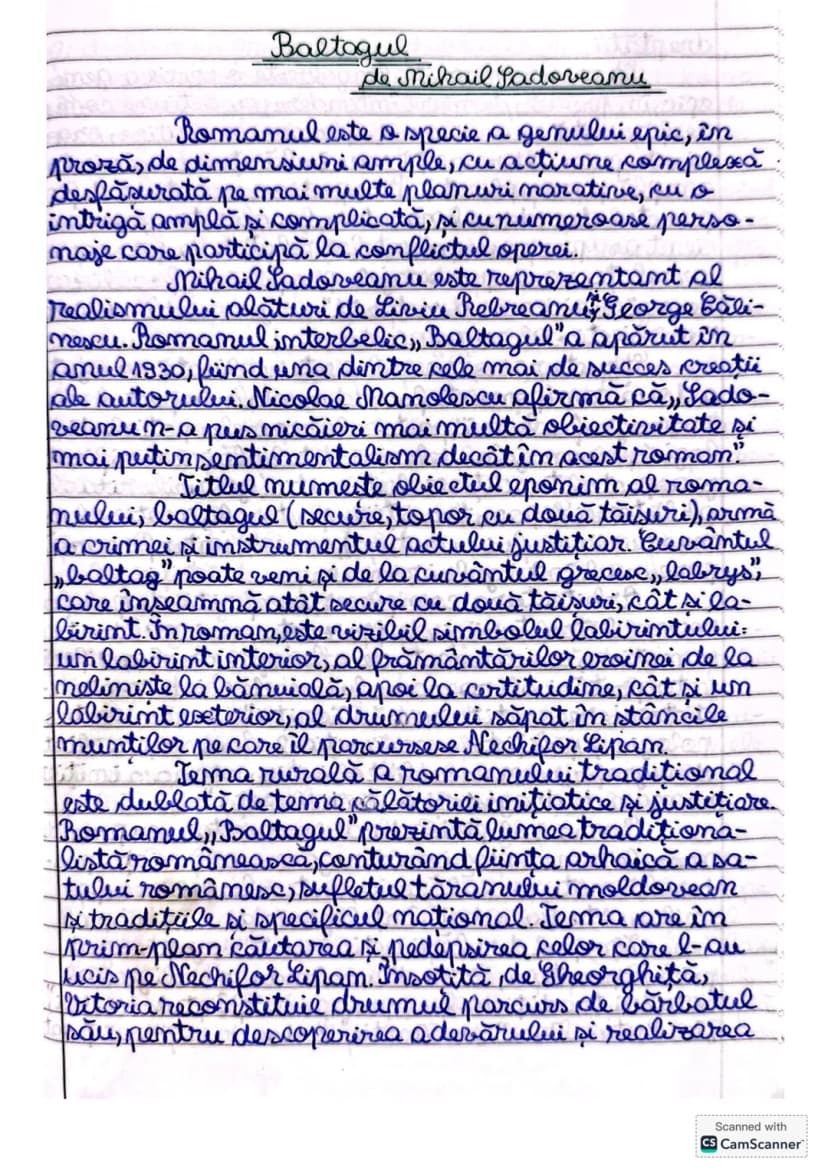 Baltagul
de Mihail Sadoveanu
Romanul este o specie a genului epic, în
proză, de dimensiuni ample, cu acțiune complexă
desfășurată pe mai multe planuri narative, cu o
intrigă amplă și complicată, și cu numeroase perso-
naje care participă la conflictul operei.
Mihail Sadoveanu este reprezentant al
realismului alături de Liviu Rebreanu și George Căli-
nescu. Romanul interbelic „Baltagul" a apărut în
anul 1930, fiind una dintre cele mai de succes creații
ale autorului. Nicolae Manolescu afirmă că „Sado-
veanu n-a pus nicăieri mai multă obiectivitate și
mai puțin sentimentalism decât în acest roman".
Titlul numește obiectul eponim al roma-
nului, baltagul (secure, topor cu două tăișuri), armă
a crimei și instrumentul actului justițiar. Cuvântul
„baltag" poate veni și de la cuvântul grecesc „labrys",
care înseamnă atât secure cu două tăișuri, cât și la-
birint. În roman, este vizibil simbolul labirintului:
un labirint interior, al frământărilor eroinei de la
neliniște la bănuială, apoi la certitudine, cât și un
labirint exterior, al drumului săpat în stâncile
munților pe care îl parcursese Nechifor Lipan.
Tema rurală a romanului tradițional
este dublată de tema călătoriei inițiatice și justițiare.
Romanul „Baltagul" prezintă lumea tradiționa-
listă românească, conturând ființa arhaică a sa-
tului românesc, sufletul țăranului moldovean
și tradițiile și specificul național. Tema are în
prim-plan căutarea și pedepsirea celor care l-au
ucis pe Nechifor Lipan. Însoțită de Gheorghiță,
Vitoria reconstituie drumul parcurs de bărbatul
său, pentru descoperirea adevărului și realizarea
Scanned with
CS CamScanner